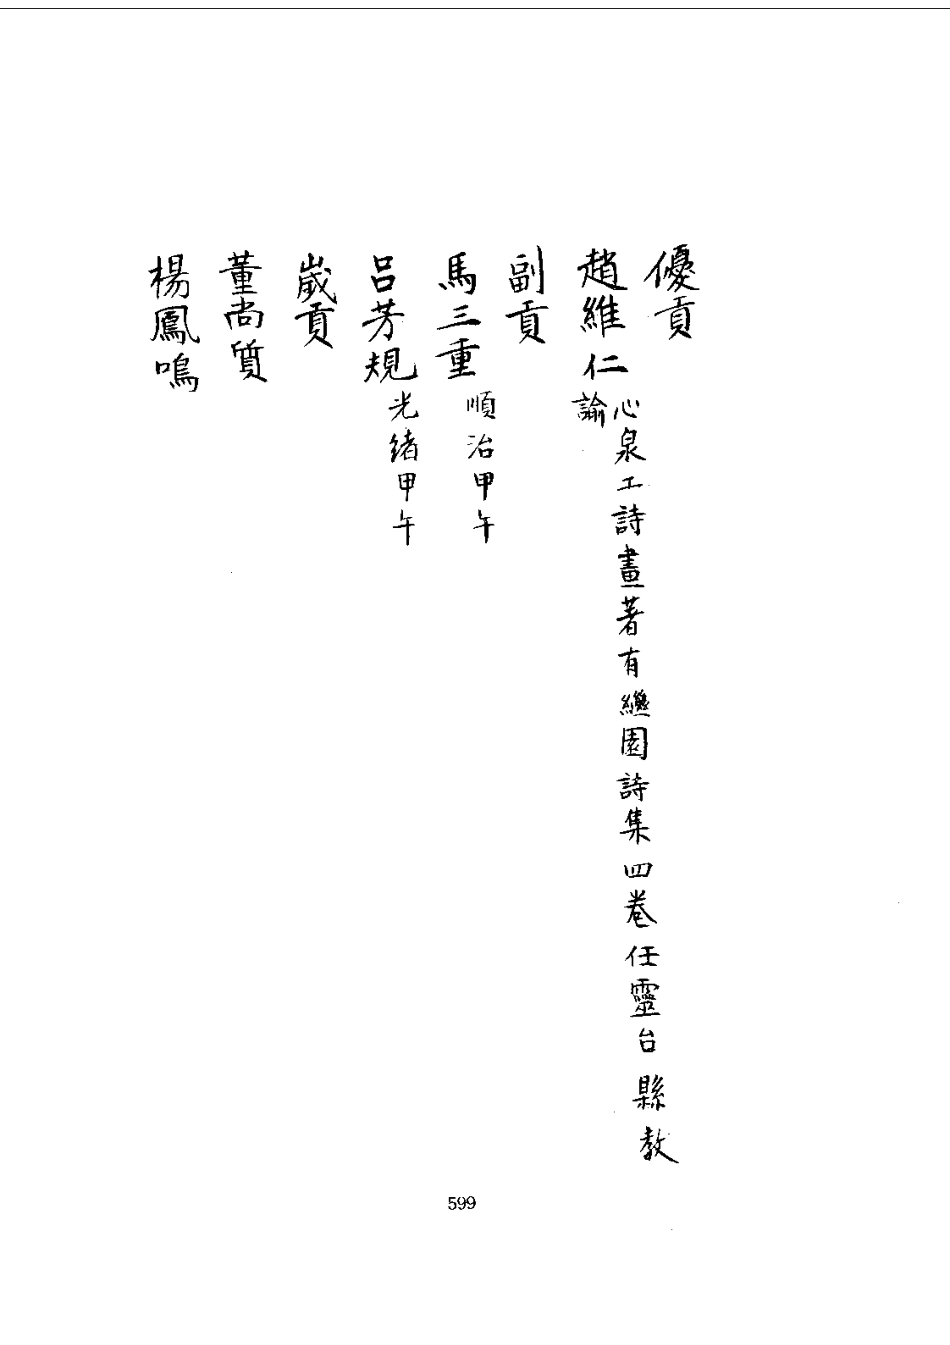 優貢
趙維仁 心泉工詩畫著有繼園詩集四卷任靈台縣教
諭
副貢
馬三重 順治甲午
呂芳規 光緒甲午
歲貢
董尚质
楊鳳鳴
599